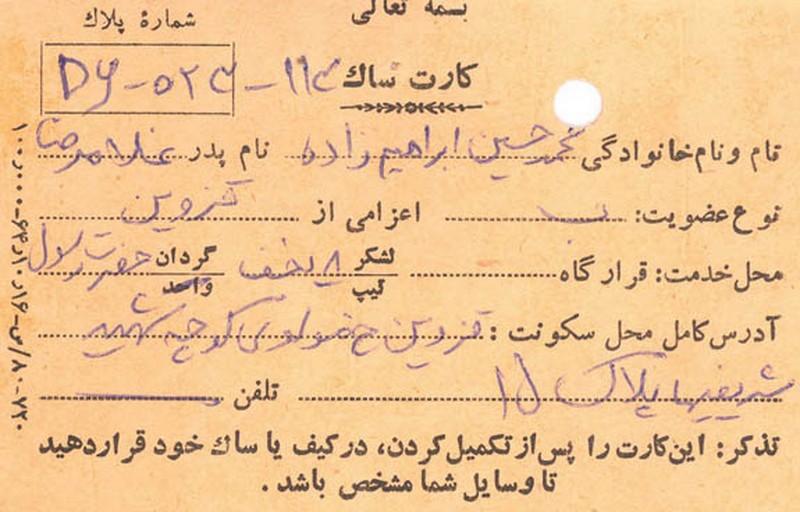 بسمه تعالی
شمارهٔ پلاک
کارت ساک DY-۵۲۳-۱۱۳
نام و نام خانوادگی محمد حسین ابراهیم زاده نام پدر غلامرضا
نوع عضویت: ب اعزامی از قزوین
محل خدمت: قرارگاه لشکر تیپ ۸ نجف گردان واحد حضرت رسول
آدرس کامل محل سکونت: قزوین خ مولوی کوچه شهید
شریفیها پلاک
تلفن
تذکر: این کارت را پس از تکمیل کردن، در کیف یا ساک خود قرار دهید
تا وسایل شما مشخص باشد.